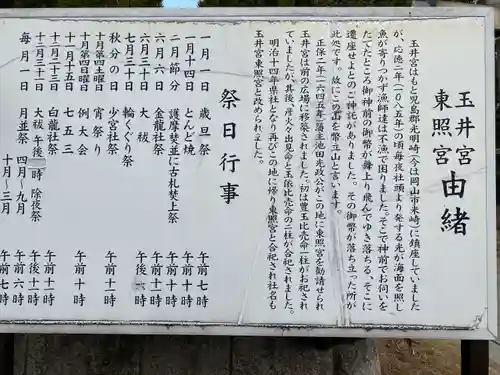 玉井宮
東照宮 由緒
玉井宮はもと児島郡光明崎(今は岡山市米崎)に鎮座していました
が、応徳二年(一〇八五年)の頃毎夜社頭より発する光が海面を照し
魚が寄りつかず漁師達は不漁で困りました。そこで神前でお伺いを
たてたところ御神前の御幣が舞上り飛んでゆき落ちる、そこに
遷座せよとのご神託がありました。その御幣が落ち立った所が
此処です。故にこの山を幣立山と言います。
正保二年(一六四五年)藩主池田光政公がこの地に東照宮を勧請せられ
玉井宮は前の広場に移築されました。初は豊玉比売命一柱がお祀され
ていましたが、其後、彦火々出見命と玉依比売命の二柱が合祀されました。
明治十四年県社となり再びこの地に帰り東照宮と合祀され社名も
玉井宮東照宮と改められました。
祭日行事
一月一日 歳旦祭 午前七時
一月十四日 とんど焼 午前十時
二月節分 護摩焚並に古札焚上祭 午前十時
六月六日 金龍社祭 午前十時
六月三十日 大祓 午後
七月三十日 輪くぐり祭
秋分の日 少宮社祭 午前十一時
十月第四土曜 宵祭り
十月第四日曜 例大会 午前十時
十一月十五日 七五三
十二月十二日 白龍社祭 午前十一時
十二月三十一日 大祓 午後二時 除夜祭 午後十一時
毎月一日 月並祭 四月~九月 午前六時
十月~三月 午前七時